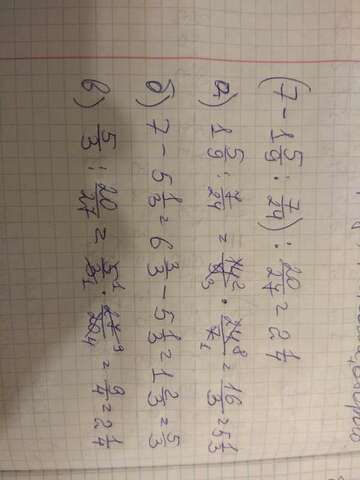 (7 - 1 5/9 : 7/24) : 20/27 = 2 1/4
а) 1 5/9 : 7/24 = 14²/9₃ · 24⁸/7₁ = 16/3 = 5 1/3
б) 7 - 5 1/3 = 6 3/3 - 5 1/3 = 1 2/3 = 5/3
в) 5/3 : 20/27 = 5¹/3₁ · 27⁹/20₄ = 9/4 = 2 1/4